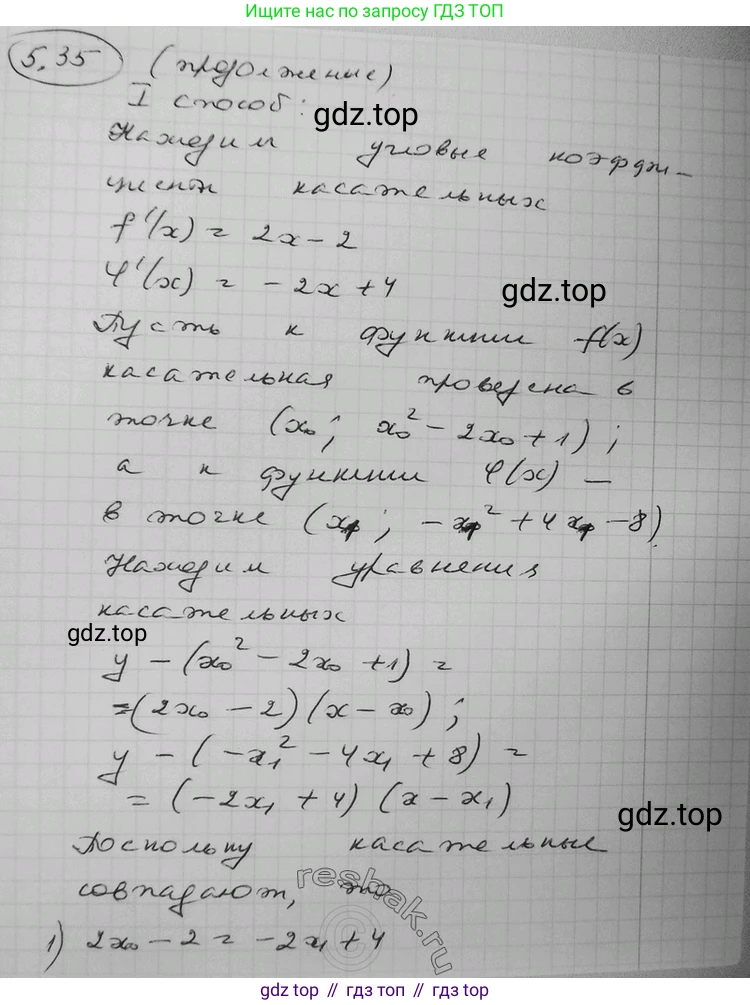 Ищите нас по запросу ГДЗ ТОП
5.35 (продолжение)
I способ:
gdz.top
Находим угловые коэффи-
циенты касательных
f'(x) = 2x - 2
φ'(x) = -2x + 4
gdz.top
Пусть к функции f(x)
касательная проведена в
точке (x₀; x₀² - 2x₀ + 1);
а к функции φ(x) —
в точке (x₁; -x₁² + 4x₁ - 8).
Находим уравнения
касательных
gdz.top
y - (x₀² - 2x₀ + 1) =
=(2x₀ - 2)(x - x₀);
y - (-x₁² - 4x₁ + 8) =
= (-2x₁ + 4)(x - x₁)
gdz.top
Поскольку касательные
совпадают, то
reshak.ru
1) 2x₀ - 2 = -2x₁ + 4
gdz.top // gdz.top // gdz.top